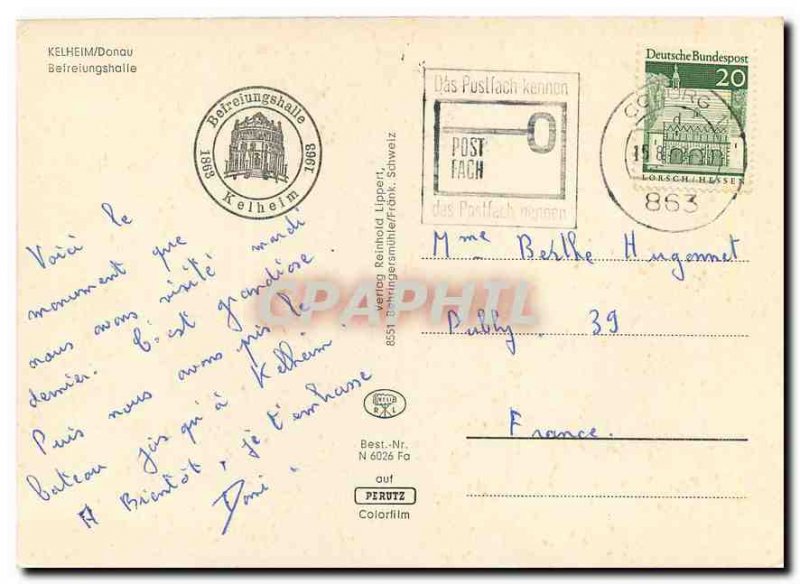 KELHEIM/Donau
Befreiungshalle
Befreiungshalle
1863 1963
Kelheim
Das Postfach kennen
POST
FACH
das Postfach nennen
Deutsche Bundespost
20
LORSCH/HESSEN
COBURG
863
Voici le
monument que
nous avons visité mardi
dernier. C'est grandiose
Puis nous avons pris le
bateau jus qu'à Kelheim.
A Bientôt, je t'embrasse
Dani.
Mme Berthe Hugonnet
Publy. 39
France.
verlag Reinhold Lippert,
8551 Behringersmühle/Fränk. Schweiz
R L
Best.-Nr.
N 6026 Fa
auf
PERUTZ
Colorfilm
CPAPHIL